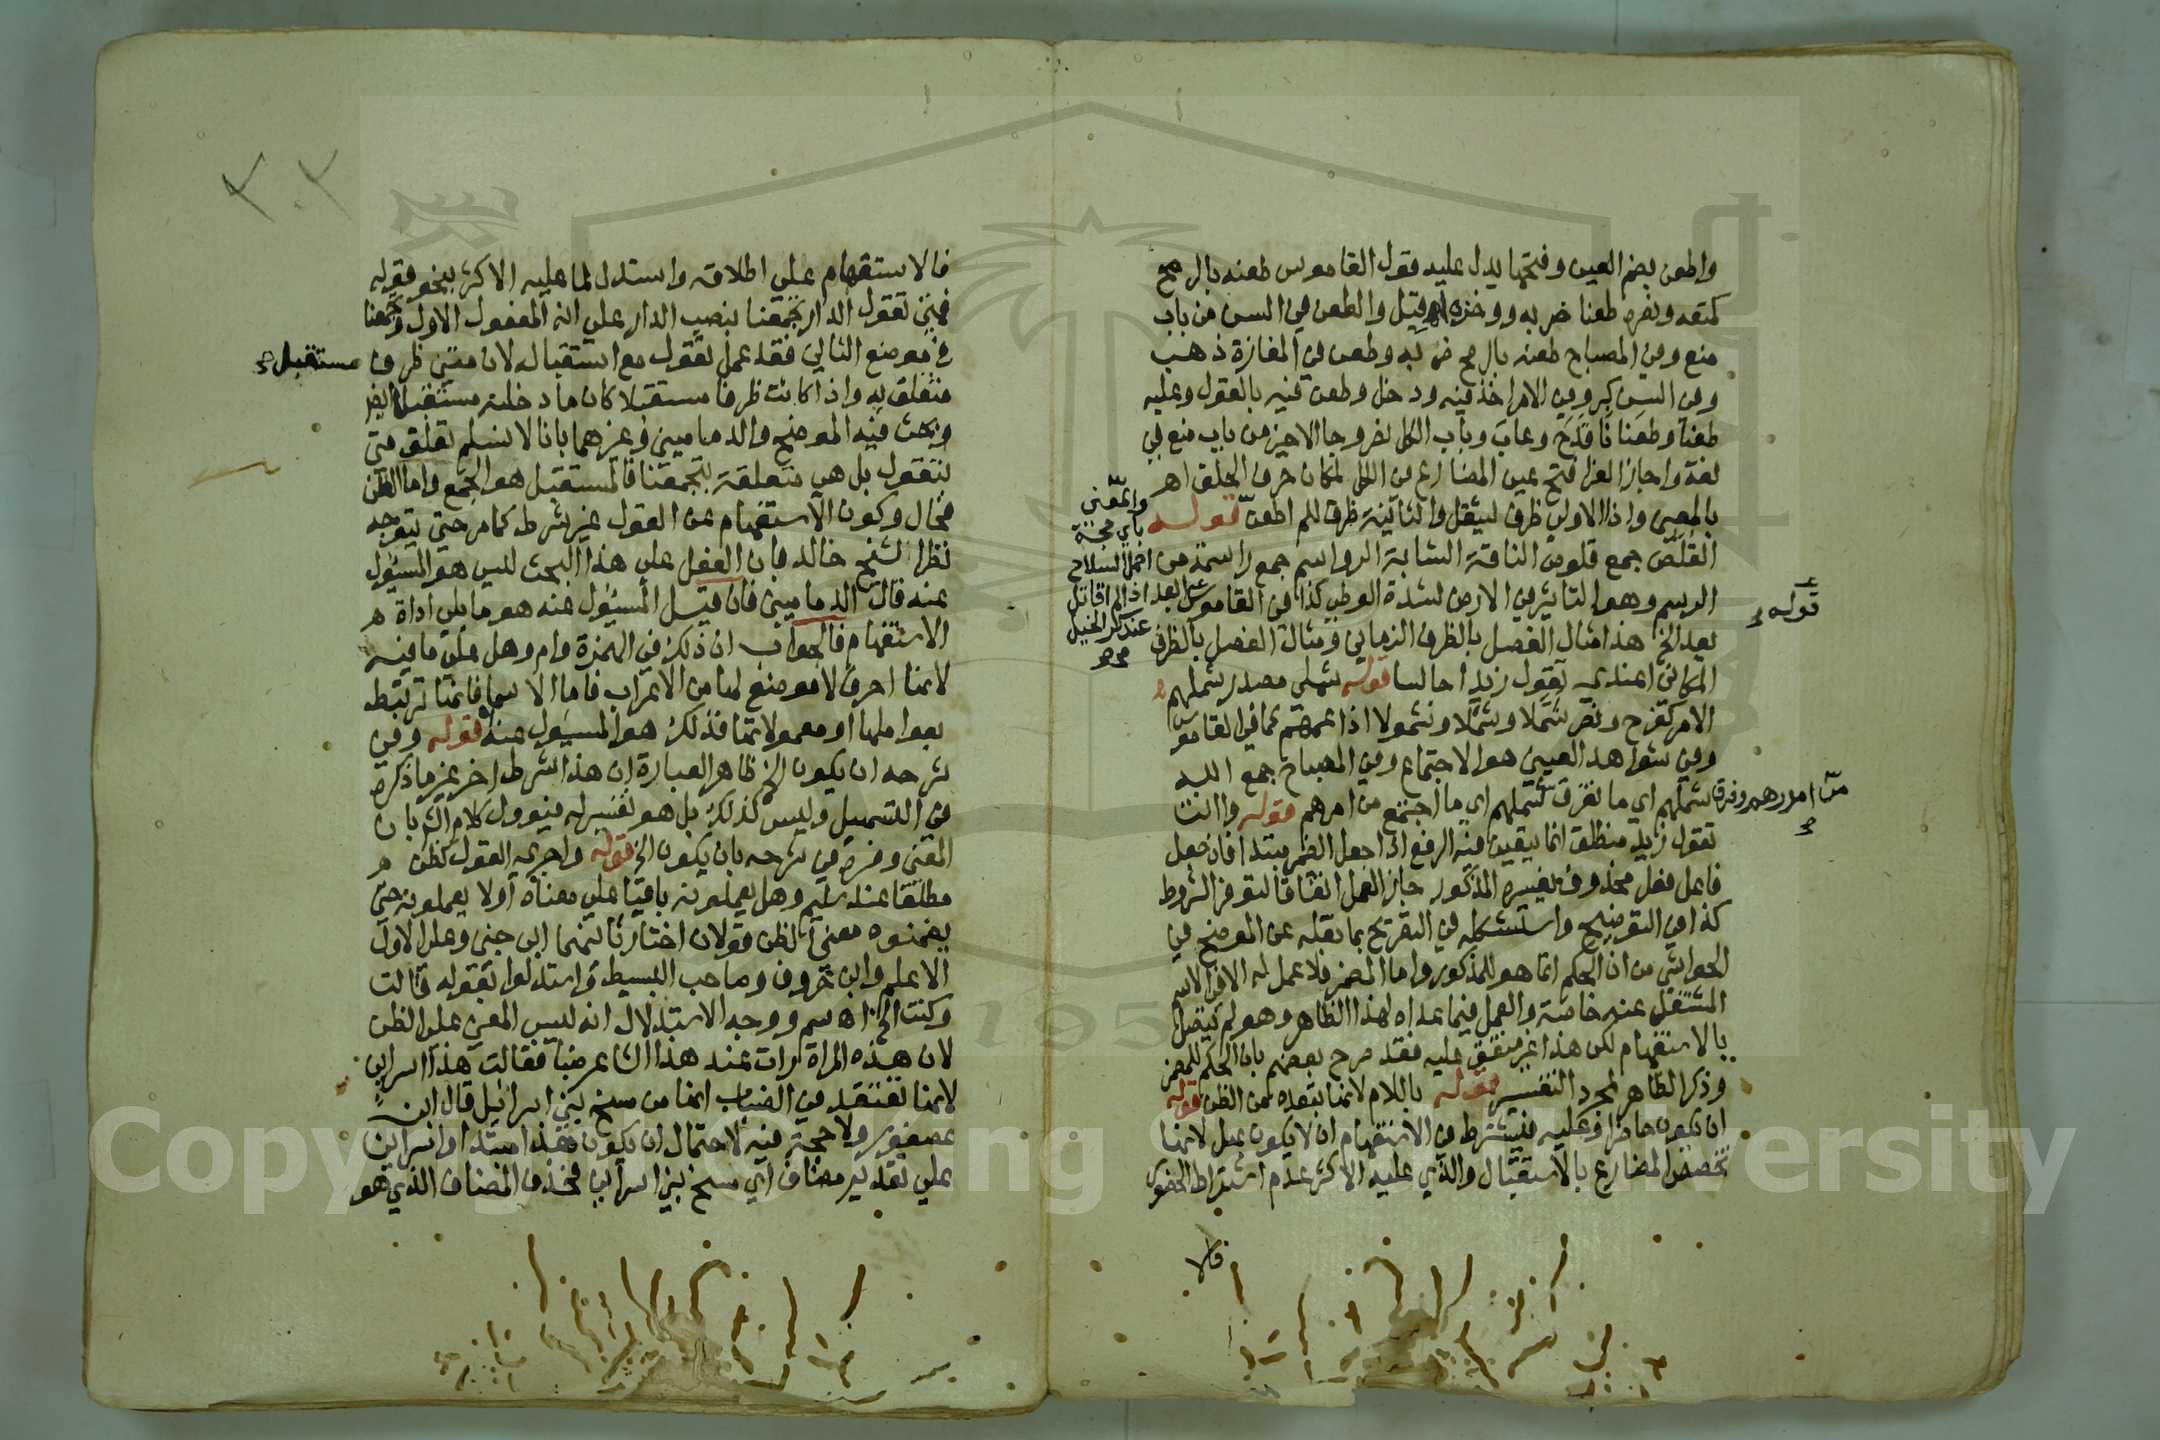 واطعن بضم العين وفتحها يدل عليه قول القاموس طعنه بالرمح
كمنعه ونصره طعنا ضربه ووخزه فهو قتيل والطعن في السن من باب
منع وفي المصباح طعنه بالرمح ضربه وطعن في المفازة ذهب
وفي السن كبر وفي الامر اخذ فيه ودخل وطعن فيه بالقول وعليه
طعنا وطعنانا قدح وعاب وباب الكل نصر وجا الاخير من باب منع في
لغة واجاز الفرا فتح عين المضارع من الكل لمكان حرف الحلق اهـ
بالمعنى واذا الاولى ظرف ليثقل والثانية ظرف للم اطعن قوله
القلص جمع قلوص الناقة الشابة الرواسم جمع راسمة من
الرسيم وهو التاثير في الارض لشدة الوطي كذا في القاموس
بعد الخ هذا مثال الفصل بالظرف الزماني ومثال الفصل بالظرف
المكاني اعندي تقول زيدا جالسا قوله شملي مصدر شملهم
الامر كفرح ونصر شملا وشملا وشمولا اذا عمهم كما في القاموس
وفي شواهد العيني هو الاجتماع وفي المصباح جمع الله
شملهم اي ما تفرق شملهم اي ما اجتمع من امرهم قوله واانت
تقول زيد منطلق انما يتعين فيه الرفع اذا جعل الضمير مبتدا فان جعل
فاعل فعل محذوف يفسره المذكور جاز العمل اتفاقا لتوفر الشروط
كذا في التوضيح واستشكله في التصريح بما نقله عن الموضح في
الحواشي من ان الحكم انما هو للمذكور واما المضمر فلا عمل له الا في الاسم
المشتغل عنه خاصة والعمل فيما عداه لهذا الظاهر وهو لم يتصل
بالاستفهام لكن هذا غير متفق عليه فقد صرح بعضهم بان الحكم للمضمر
وذكر الظاهر لمجرد التفسير قوله باللام لانها تبعده من الظن قوله
ان تكون حاضرا وعليه فيشترط في الاستفهام ان لا يكون بهل لانها
تخصص المضارع بالاستقبال والذي عليه الاكثر عدم اشتراط الحضور
فالا
والمعنى
باي حجة
احمل السلاح
اذا لم اقاتل
عند كر الخيل
صح
قوله
من امورهم وفرق
٣٠٢
فالاستفهام على اطلاقه واستدل لما عليه الاكثر بنحو قوله
فمتى تقول الدار تجمعنا بنصب الدار على انه المفعول الاول وتجمعنا
في موضع الثاني فقد عمل تقول مع استقباله لان متى ظرف
متعلق به واذا كانت ظرفا مستقبلا كان ما دخلته مستقبلا ايضا
وبحث فيه الموضح والدماميني وغيرهما بانا لا نسلم تعلق متى
بتقول بل هي متعلقة بتجمعنا فالمستقبل هو الجمع واما الظن
فحال وكون الاستفهام عن القول غير شرط كما مر حتى يتوجه
نظر الشيخ خالد فان الفعل على هذا البحث ليس هو المسئول
عنه قال الدماميني فان قيل المسئول عنه هو ما يلي اداة
الاستفهام فالجواب ان ذلك في الهمزة وام وهل على ما فيه
لانها احرف لا موضع لها من الاعراب فاما الاسما فانما ترتبط
بعواملها او معمولاتها فذلك هو المسئول عنه قوله وفي
شرحه ان يكون الخ ظاهر العبارة ان هذا شرط اخر غير ما ذكره
في التسهيل وليس كذلك بل هو تفسير له فيوول كلام الش بان
المعنى وفسره في شرحه بان يكون الخ قوله واجري القول كظن
مطلقا عند سليم وهل يعملونه باقيا على معناه او لا يعملونه حتى
يضمنوه معنى الظن قولان اختار ثانيهما ابن جني وعلى الاول
الاعلم وابن خروف وصاحب البسيط واستدلوا بقوله قالت
وكنت الخ اهـ سم ووجه الاستدلال انه ليس المعنى على الظن
لان هذه المراة رات عند هذا الشاعر ضبا فقالت هذا اسرائين
لانها تعتقد في الضباب انها من مسخ بني اسرائيل قال ابن
عصفور ولا حجة فيه لاحتمال ان يكون هذا مبتدا واسرائين
على تقدير مضاف اي مسخ بني اسرائين فحذف المضاف الذي هو
مستقبل